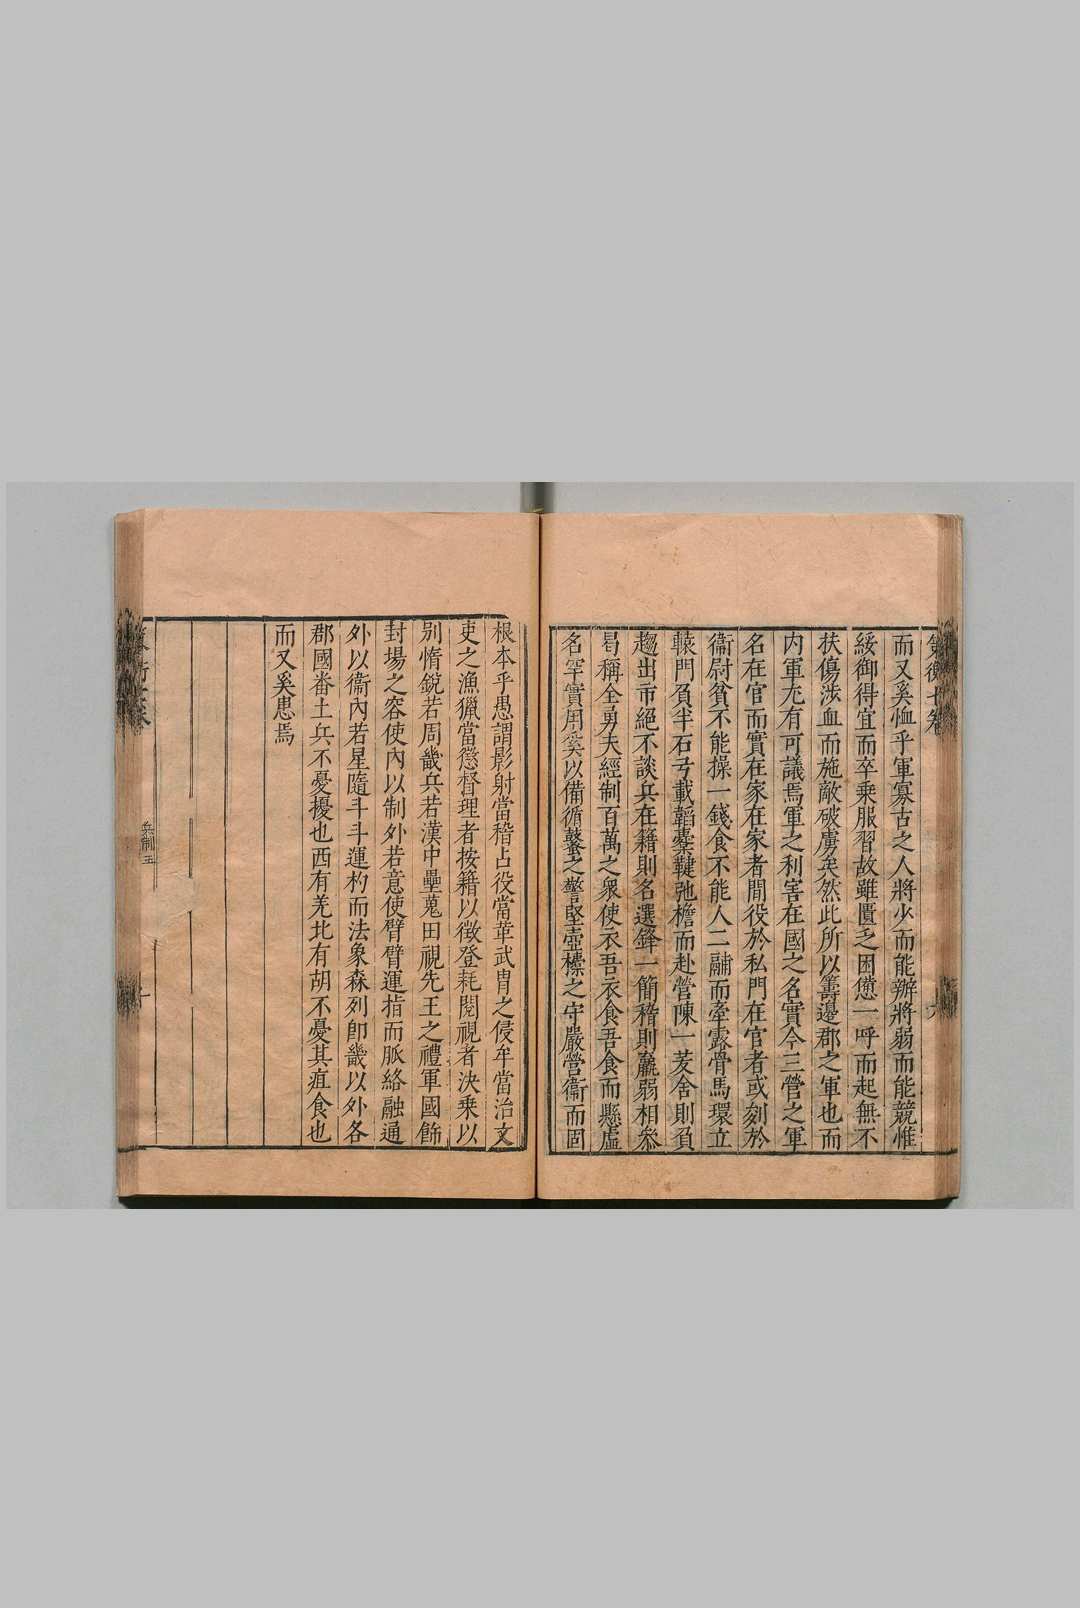 策衡七卷
六
而又奚恤乎軍寡古之人將少而能辦將弱而能競惟
綏御得宜而卒乗服習故雖匱乏困憊一呼而起無不
扶傷涉血而施敵破虜矣然此所以籌邊郡之軍也而
内軍尤有可議焉軍之利害在國之名實今三營之軍
名在官而實在家在家者閒役於私門在官者或刻於
衞尉貧不能操一錢食不能人二鬴而牽露骨馬環立
轅門負半石弓載韜櫜鞬弛檐而赴營陳一茇舍則負
趨出市絕不談兵在籍則名選鋒一簡稽則羸弱相叅
曷稱全勇夫經制百萬之衆使衣吾衣食吾食而懸虛
名罕實用奚以備循鼜之警堅壺櫜之守嚴營衞而固
根本乎愚謂影射當稽占役當革武冑之侵牟當治文
吏之漁獵當懲督理者按籍以徵登耗閱視者決乗以
别惰銳若周畿兵若漢中壘蒐田視先王之禮軍國飾
封場之容使内以制外若意使臂臂運指而脈絡融通
外以衞内若星隨斗斗運杓而法象森列卽畿以外各
郡國畨土兵不憂擾也西有羌北有胡不憂其疽食也
而又奚患焉
兵制五